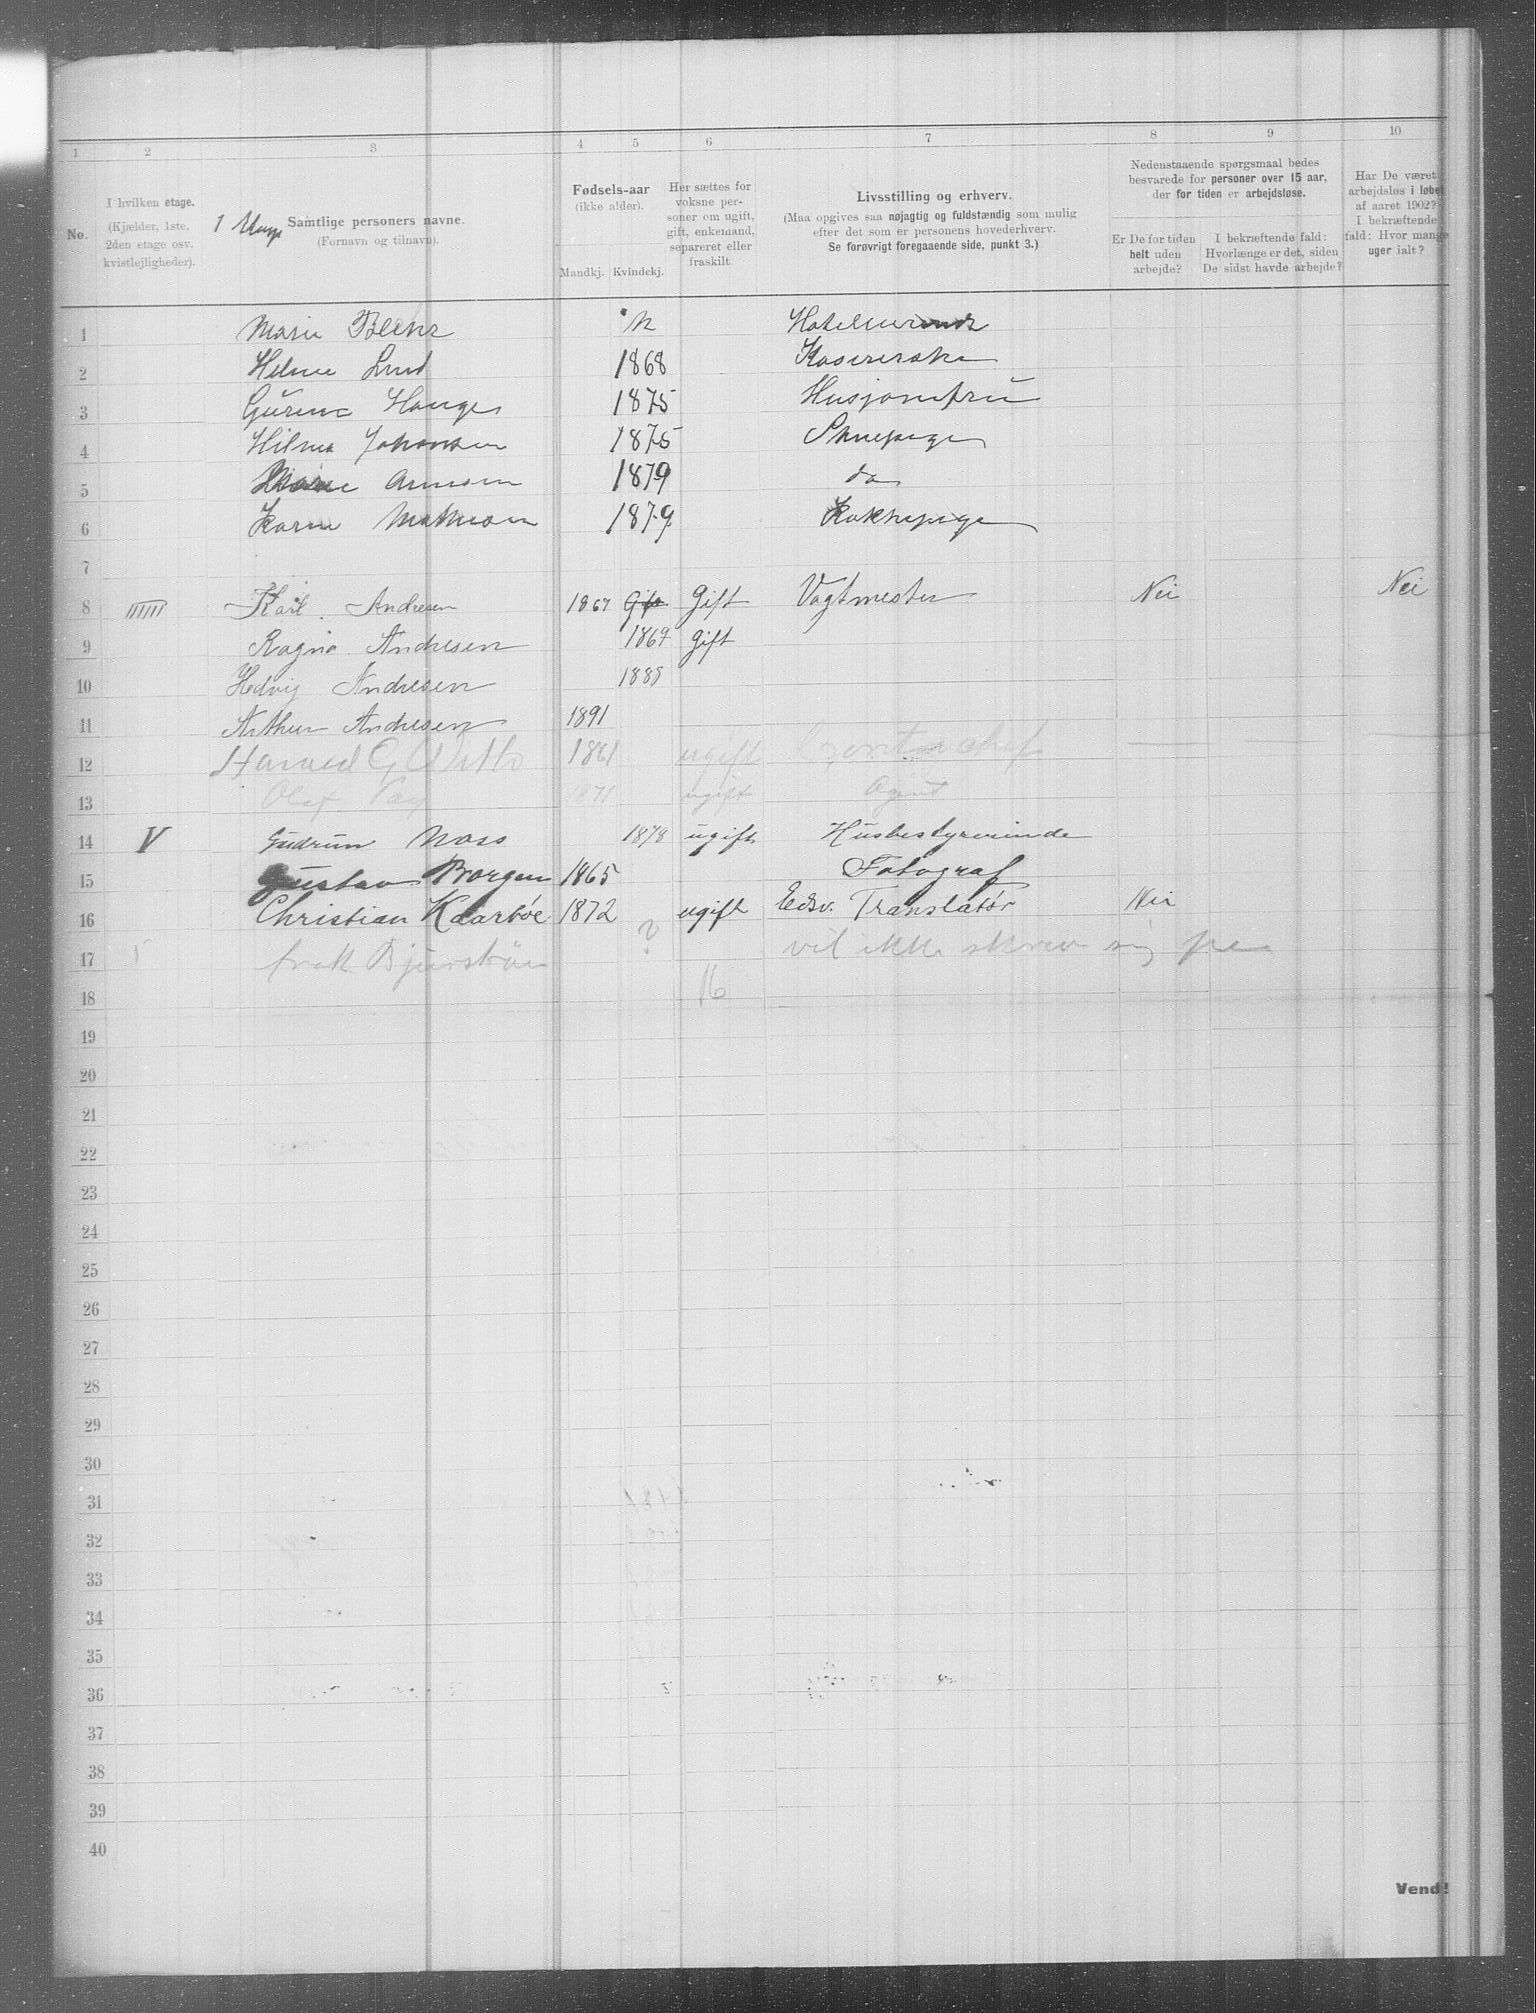 1 2 3 4 5 6 7 8 9 10
No.
I hvilken etage.
(Kjælder, 1ste,
2den etage osv.
kvistlejligheder).
1
Samtlige personers navne.
(Fornavn og tilnavn).
Fødsels-aar
(ikke alder).
Mandkj. Kvindekj.
Her sættes for
voksne per-
soner om ugift,
gift, enkemand,
separeret eller
fraskilt.
Livsstilling og erhverv.
(Maa opgives saa nøjagtig og fuldstændig som mulig
efter det som er personens hovederhverv.
Se forøvrigt foregaaende side, punkt 3.)
Nedenstaaende spørgsmaal bedes
besvarede for personer over 15 aar,
der for tiden er arbejdsløse.
Er De for tiden
helt uden
arbejde?
I bekræftende fald:
Hvorlænge er det, siden
De sidst havde arbejde?
Har De været
arbejdsløs i løbet
af aaret 1902?
I bekræftende
fald: Hvor mange
uger ialt?
1 Marie Blehr
2 Helene Lund 1868 Kasererske
3 Gurine Hauge 1875 Husjomfru
4 Hilma Johansen 1875
5 1879 do
6 Karen Mathiesen 1879 Kokkepige
7
8 Karl Andresen 1867 Gift Gift Vagtmester Nei Nei
9 Ragna Andresen 1869 gift
10 Hedvig Andresen 1889
11 Arthur Andresen 1891
12 1861 ugift
13 Olaf 1871 ugift Agent
14 V Gudrun Nass 1878 ugift Husbestyrerinde
15 Gustav Borgen 1865 Fotograf
16 Christian Kaarbøe 1872 ugift Edsv. Translatør Nei
17 frøk. Bjurstrøm ? vil ikke skrive sig paa
18 16
19
20
21
22
23
24
25
26
27
28
29
30
31
32
33
34
35
36
37
38
39
40
Vend!